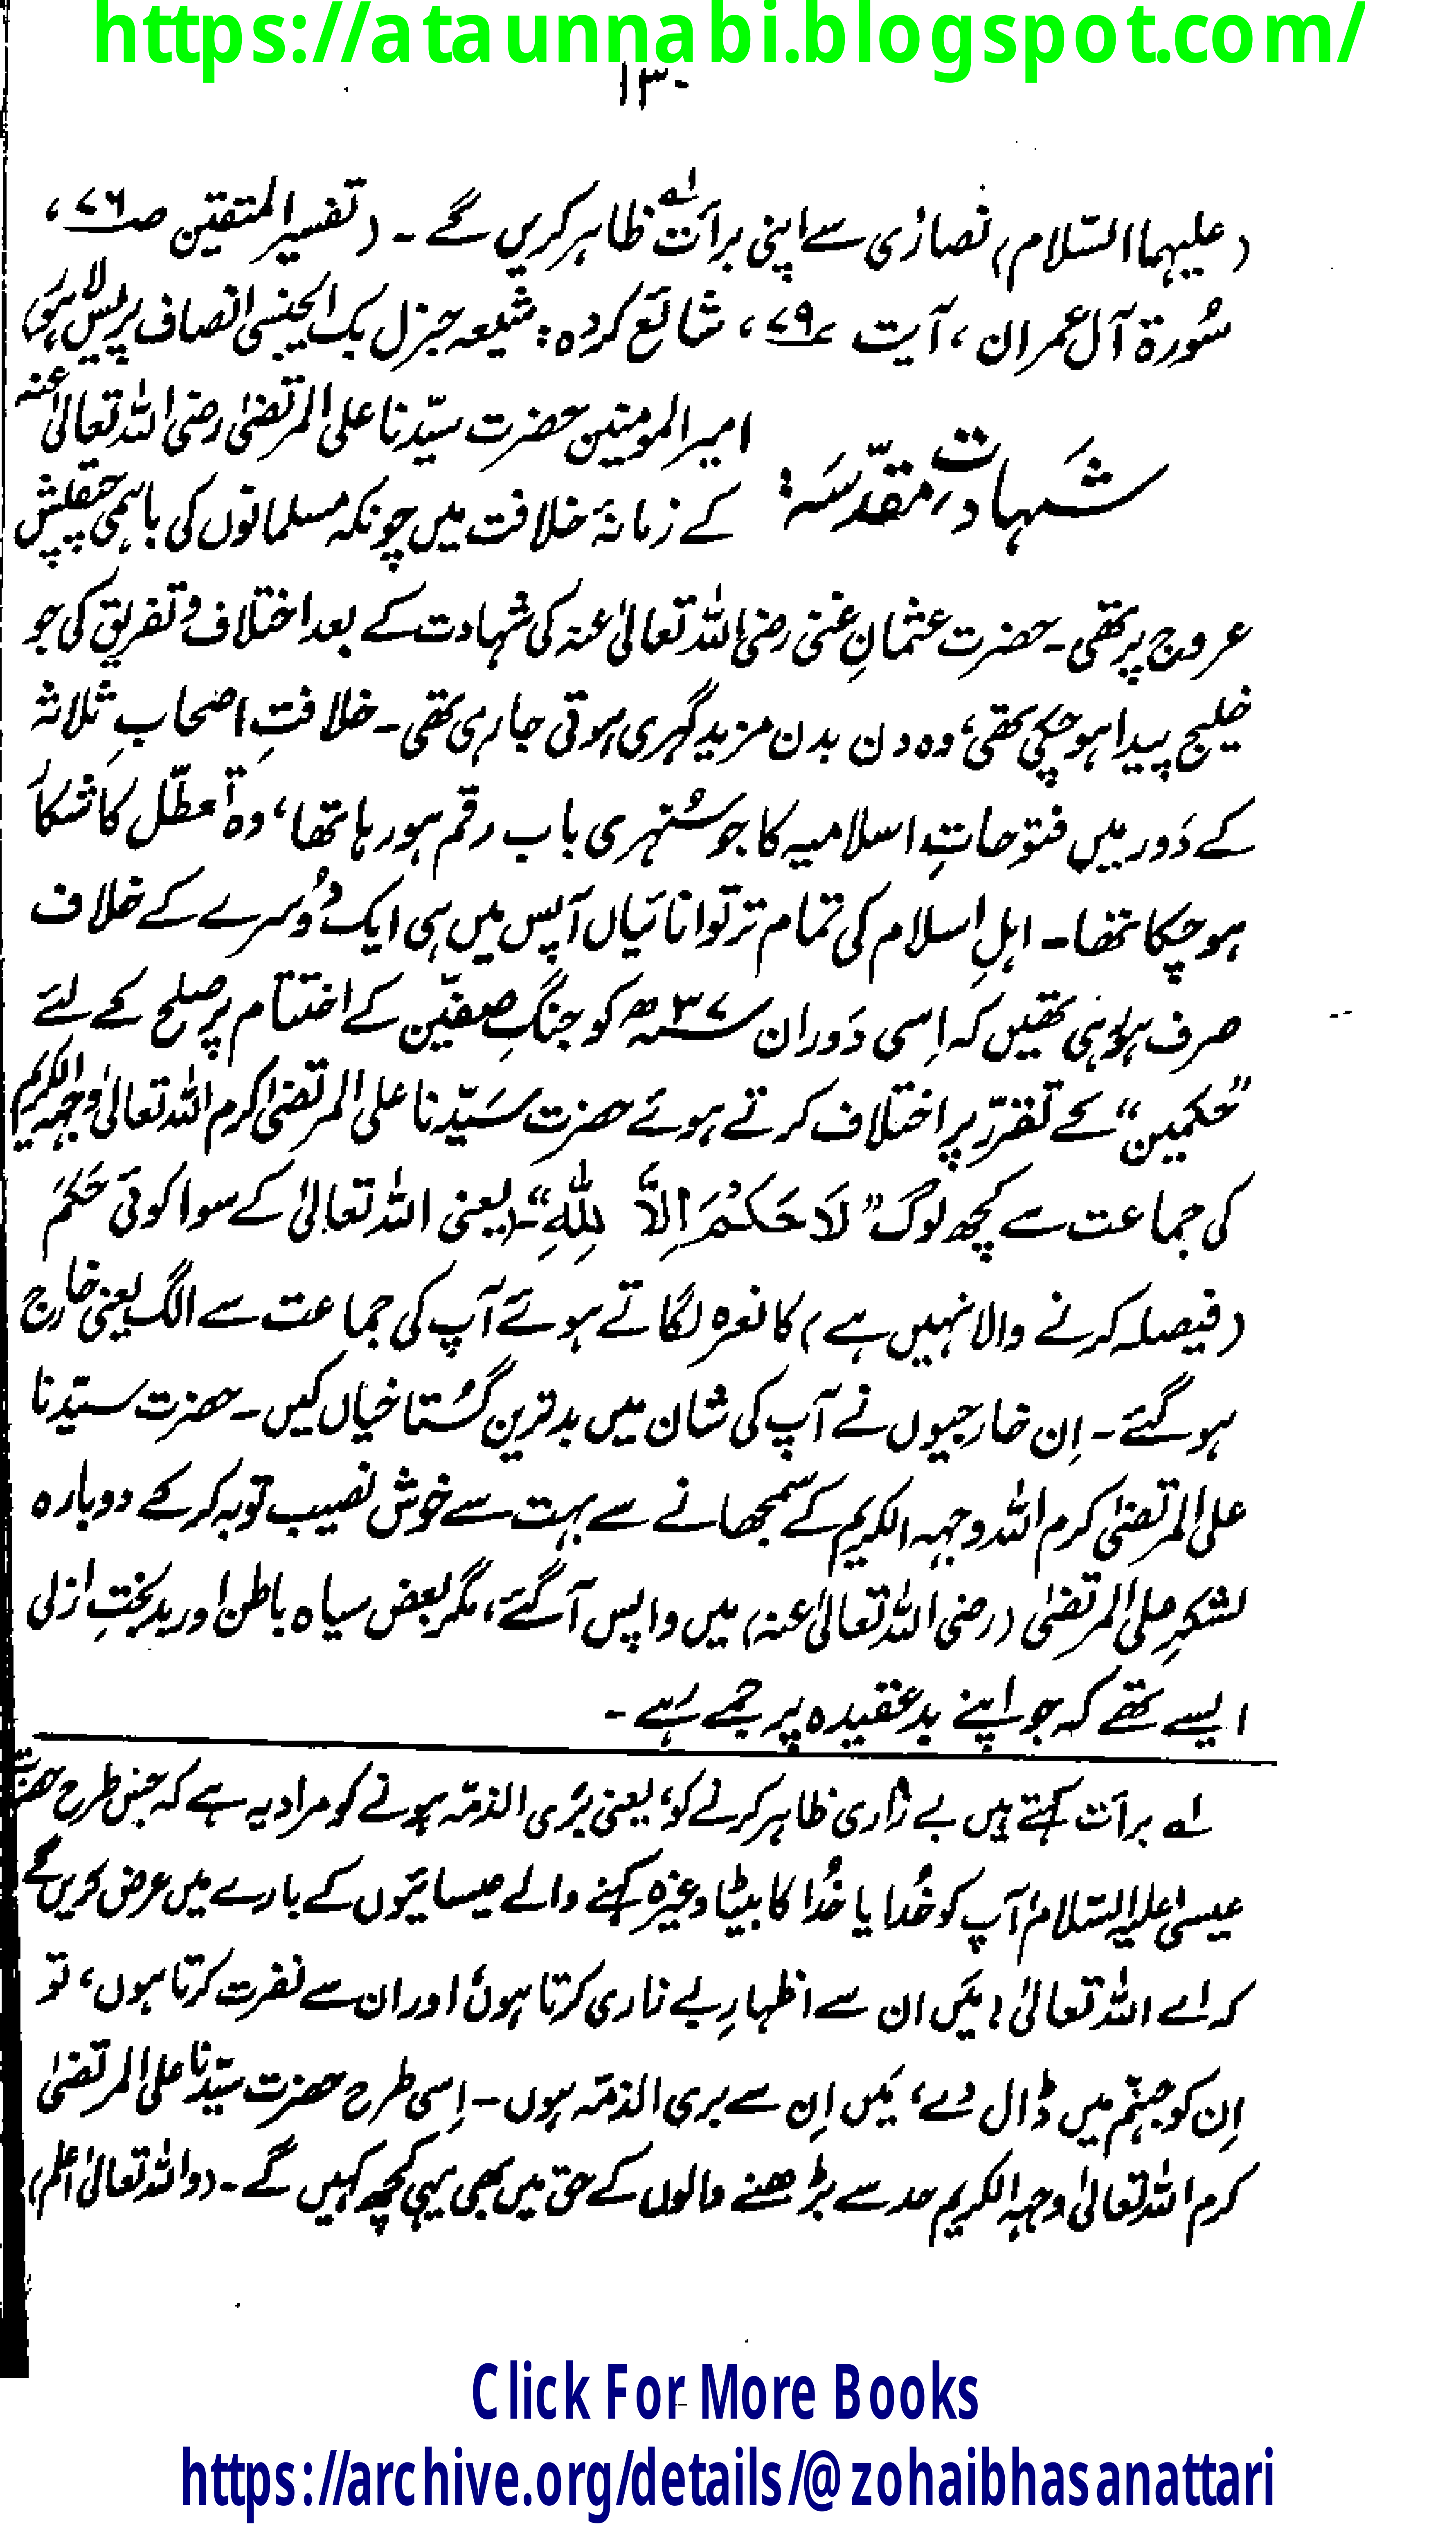 https://ataunnabi.blogspot.com/
۱۳۰
(علیہما السّلام) نصارٰی سے اپنی برأت؂۱ ظاہر کریں گے ۔ (تفسیر المتقین صـ۷۶،
سُورۃ آلِ عمران ، آیت ۷۹، شائع کردہ: شیعہ جنرل بک ایجنسی انصاف پریس لاہور)
شہادتِ مقدّسہ:
امیر المومنین حضرت سیّدنا علی المرتضیٰ رضی اللہ تعالیٰ عنہ
کے زمانۂ خلافت میں چونکہ مسلمانوں کی باہمی چپقلش
عروج پر تھی ۔ حضرت عثمانِ غنی رضی اللہ تعالیٰ عنہ کی شہادت کے بعد اختلاف و تفریق کی جو
خلیج پیدا ہو چکی تھی، وہ دن بدن مزید گہری ہوتی جا رہی تھی ۔ خلافتِ اصحابِ ثلاثہ
کے دَور میں فتوحاتِ اسلامیہ کا جو سُنہری باب رقم ہو رہا تھا، وہ تعطّل کا شکار
ہو چکا تھا ۔ اہلِ اسلام کی تمام تر توانائیاں آپس میں ہی ایک دُوسرے کے خلاف
صرف ہو رہی تھیں کہ اِسی دَوران ۳۷ھ کو جنگِ صفیّن کے اختتام پر صلح کے لئے
”حکمین“ کے تقرّر پر اختلاف کرتے ہوئے حضرت سَیّدنا علی المرتضیٰ کرم اللہ تعالیٰ وجہہ الکریم
کی جماعت سے کچھ لوگ ”لَا حَکَمَ اِلَّا لِلّٰهِ“۔(یعنی اللہ تعالیٰ کے سوا کوئی حَکَمَ
(فیصلہ کرنے والا نہیں ہے) کا نعرہ لگاتے ہوئے آپ کی جماعت سے الگ یعنی خارج
ہو گئے ۔ اِن خارجیوں نے آپ کی شان میں بدترین گستاخیاں کیں ۔ حضرت سیّدنا
علی المرتضیٰ کرم اللہ وجہہ الکریم کے سمجھانے سے بہت سے خوش نصیب توبہ کر کے دوبارہ
لشکرِ علی المرتضیٰ (رضی اللہ تعالیٰ عنہ) میں واپس آ گئے، مگر بعض سیاہ باطن اور بدبختِ ازلی
ایسے تھے کہ جو اپنے بدعقیدہ پر جمے رہے ۔
؂۱ برأت کہتے ہیں بے زاری ظاہر کرنے کو، یعنی بری الذمّہ ہونے کو مراد یہ ہے کہ جس طرح حضرت
عیسیٰ علیہ السّلام آپ کو خُدا یا خُدا کا بیٹا وغیرہ کہنے والے عیسائیوں کے بارے میں عرض کریں گے
کہ اے اللہ تعالیٰ! میں ان سے اظہارِ بے زاری کرتا ہوں اور ان سے نفرت کرتا ہوں، تو
اِن کو جہنّم میں ڈال دے، میں اِن سے بری الذمّہ ہوں ۔ اِسی طرح حضرت سیّدنا علی المرتضیٰ
کرم اللہ تعالیٰ وجہہ الکریم حد سے بڑھنے والوں کے حق میں بھی یہی کچھ کہیں گے ۔ (واللہ تعالیٰ اعلم)
Click For More Books
https://archive.org/details/@zohaibhasanattari